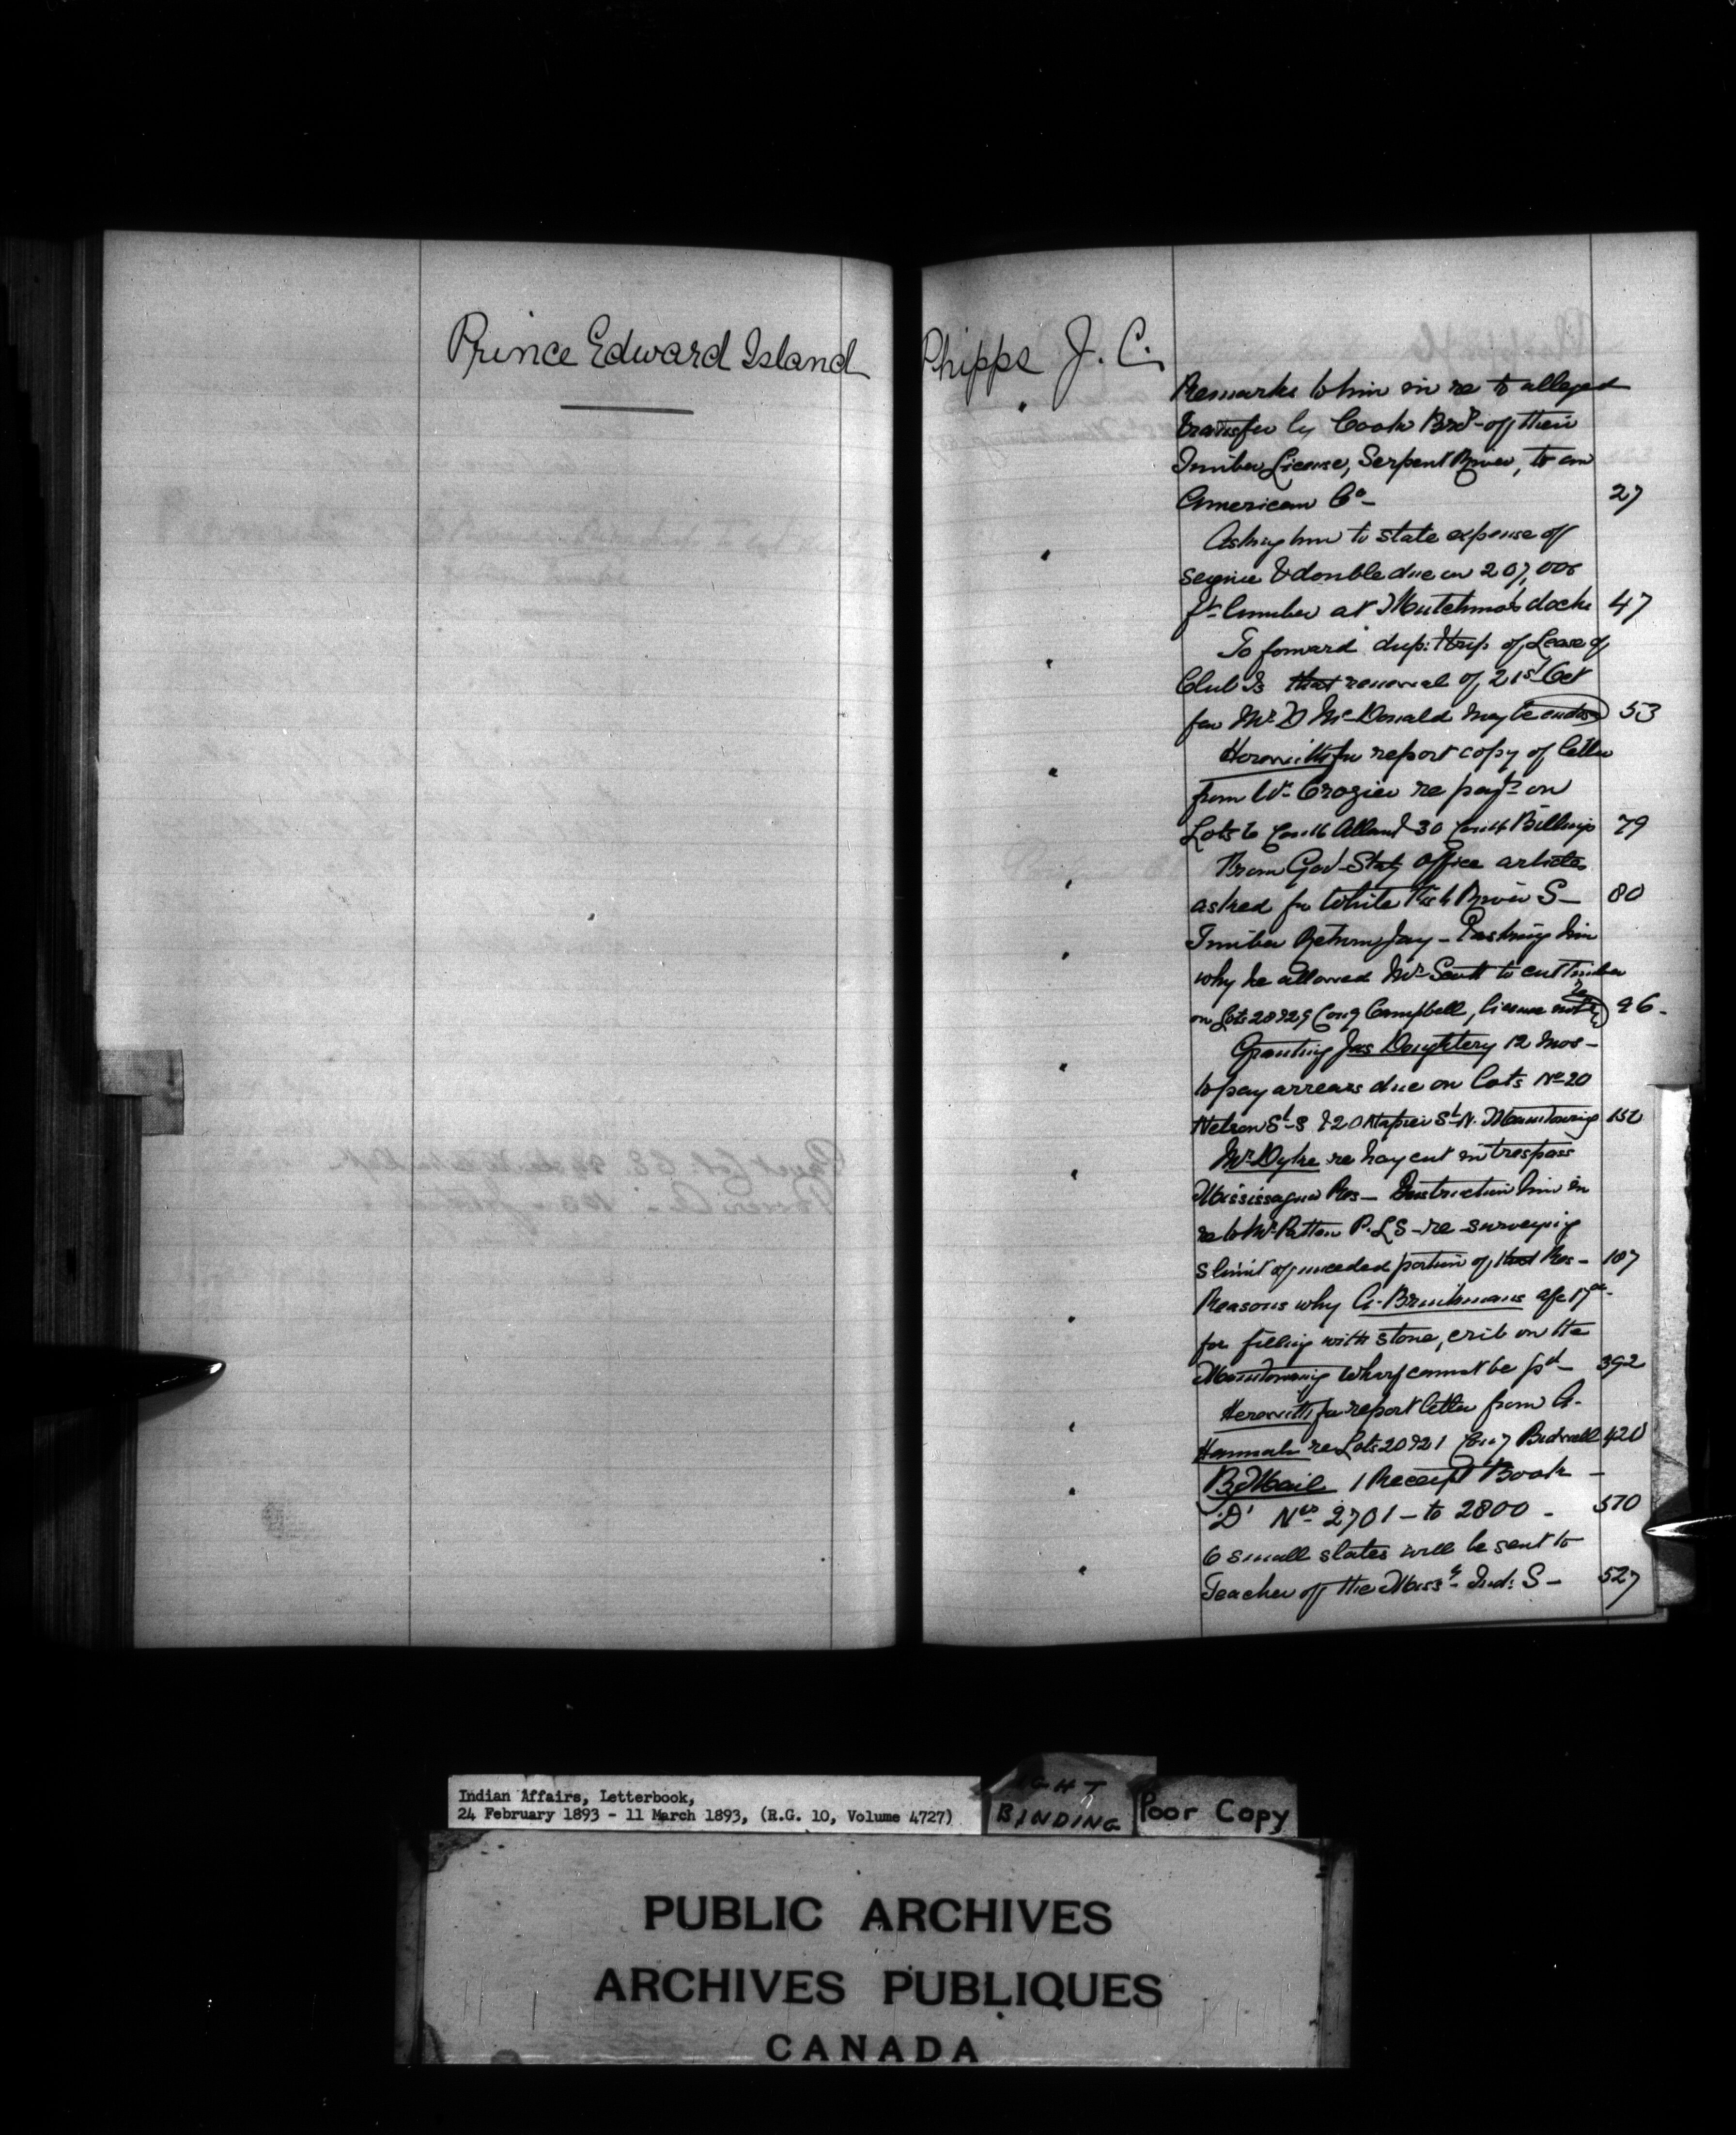 Prince Edward Island
Phipps J. C.
Remarks to him in re to alleged
transfer by Cook Bros. of their
Timber License, Serpent River, to an
American Co - 27
Asking him to state expense of
seizure & double due on 207,000
ft lumber at dock 47
To forward dup: trip of Lease of
Club Is that renewal of 21st Oct
for Mr D McDonald may be endos 53
Herewith for report copy of letter
from Wm Crozier re payt on
Lots 6 Con 16 Allan & 30 Con 14 Billings 79
From Govt Staty Office articles
asked for White Fish River S - 80
Timber Return Jay - & asking him
why he allowed Mr Scott to cut timber
on Lots 28 & 29 Con 9 Campbell, license 96 -
Granting Jas Doughtery 12 mos -
to pay arrears due on Lots No 20
Nelson St S & 20 Napier St N. Manitowaning 150
Mr Dyke re hay cut in trespass
Mississagua Res - Instruction him in
re to Mr Patton P.L.S - re surveying
S limit of unceded portion of that Res - 187
Reasons why G. Brinkmans a/c 17
for filling with stone, crib on the
Manitowaning Wharf cannot be pd - 392
Herewith for report letter from G.
Hannah re Lots 20 & 21 Con 7 Bidwell 420
By Mail 1 Receipt Book -
'D' Nos 2701 - to 2800 - 570
6 small slates will be sent to
Teacher of the Miss. Ind: S - 527
Indian Affairs, Letterbook,
24 February 1893 - 11 March 1893, (R.G. 10, Volume 4727)
BINDING
Poor Copy
PUBLIC ARCHIVES
ARCHIVES PUBLIQUES
CANADA